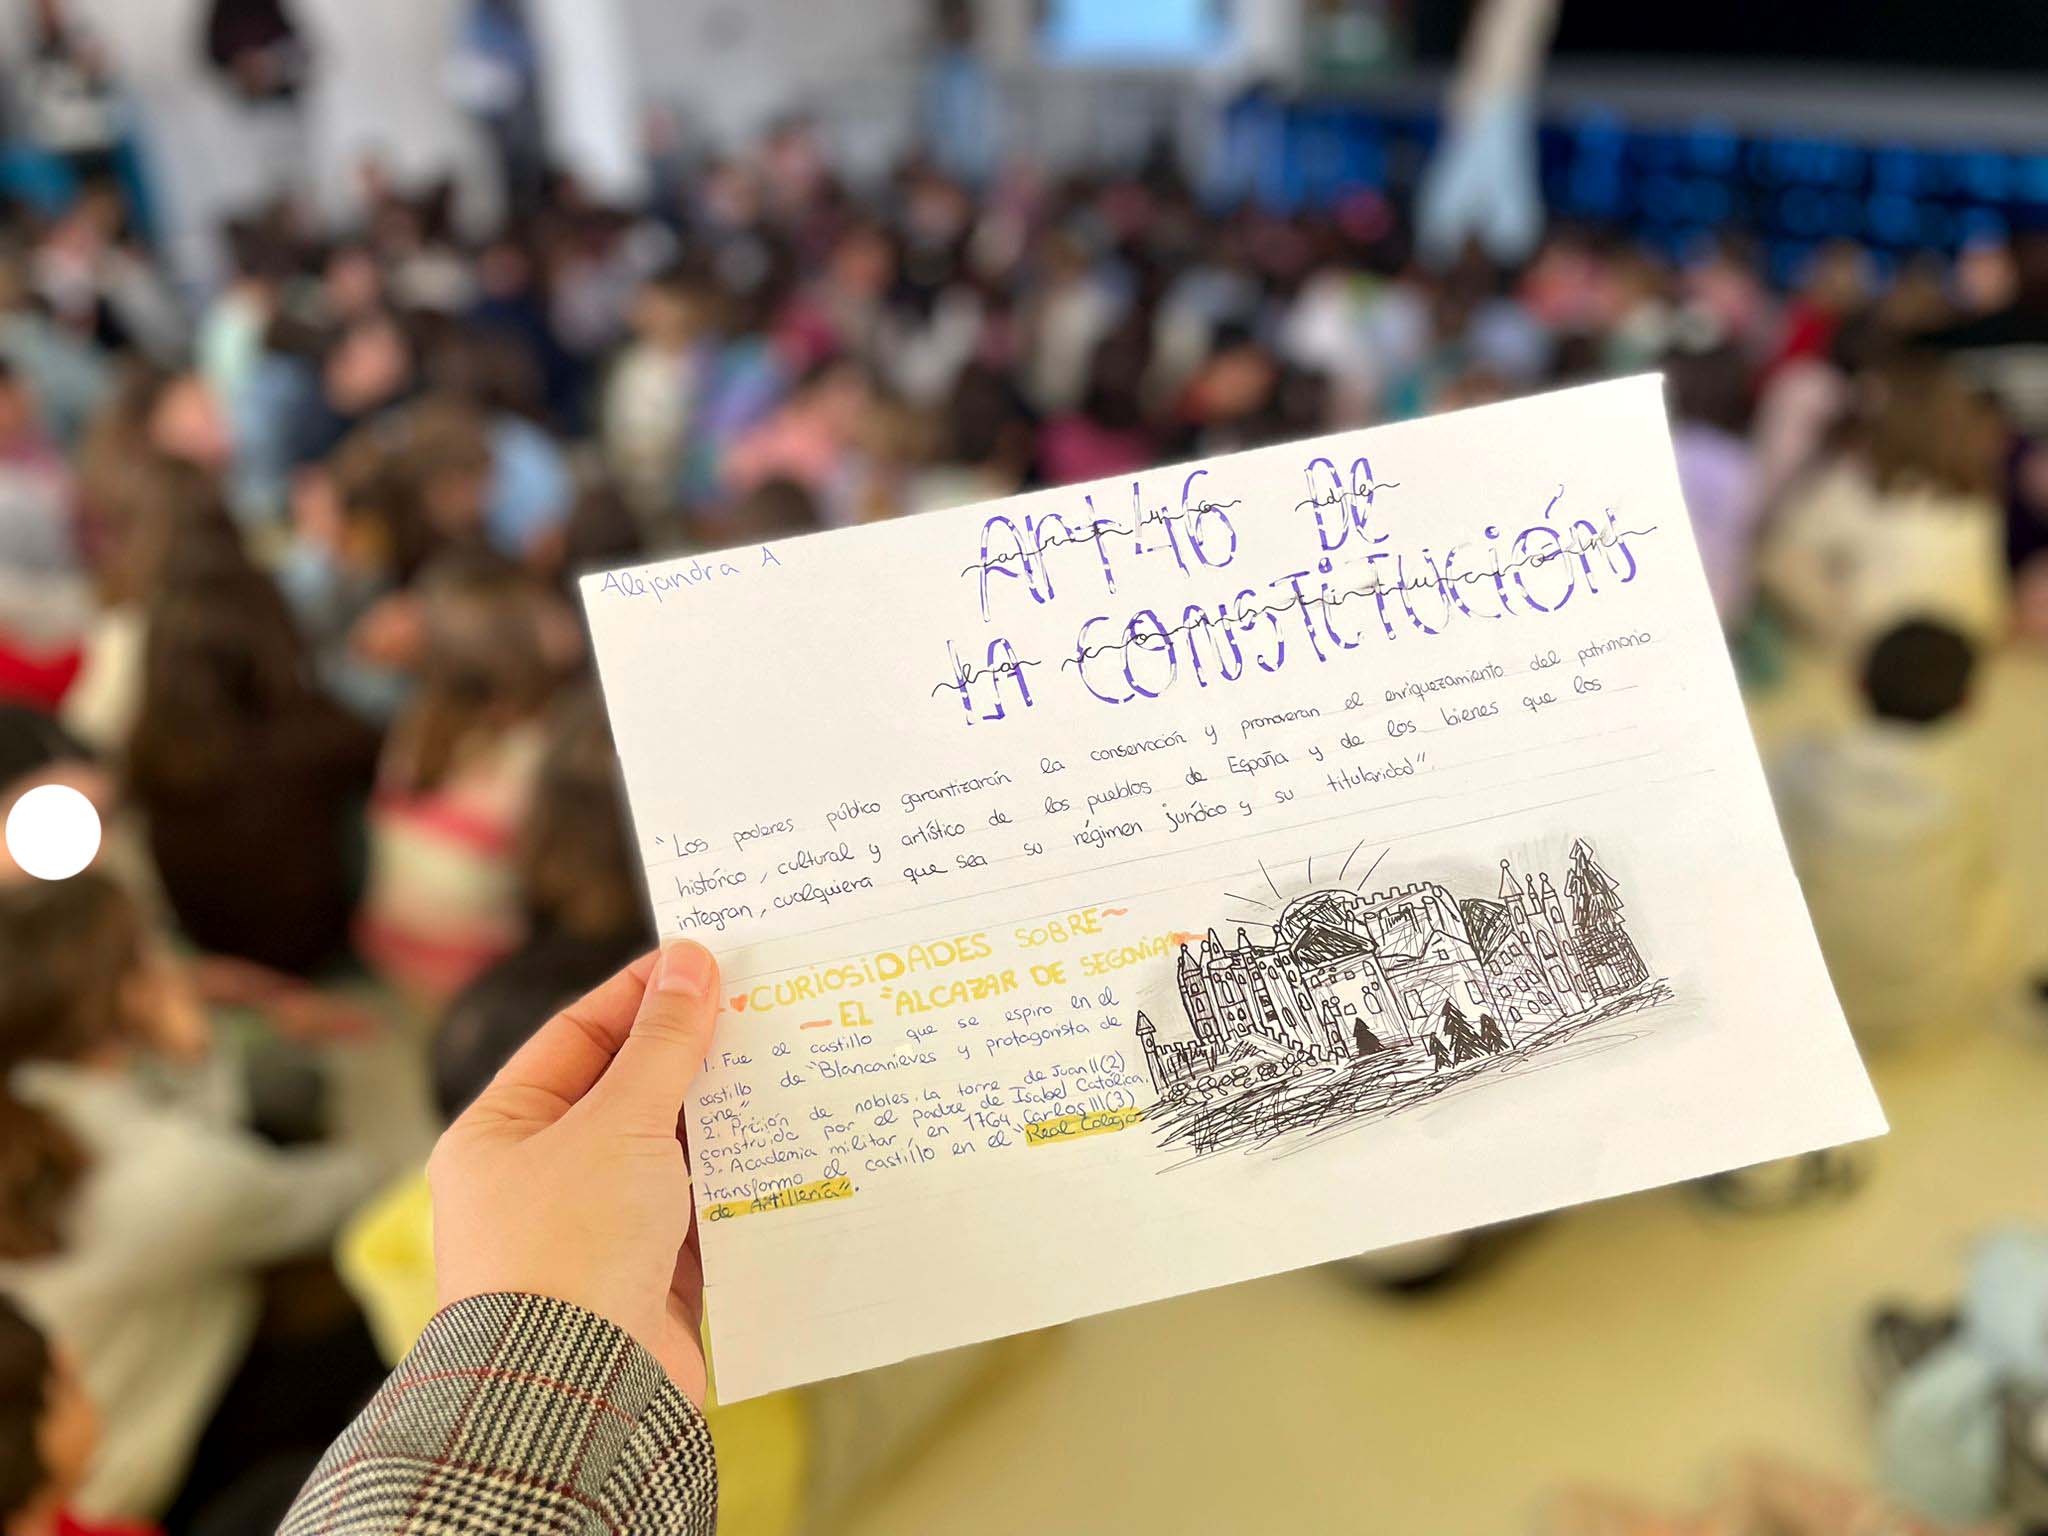 Alejandra A
ART 46 DE
artículo de
LA CONSTITUCIÓN
la constitución
"Los poderes público garantizarán la conservación y promoveran el enriquezamiento del patrimonio
histórico, cultural y artístico de los pueblos de España y de los bienes que los
integran, cualquiera que sea su régimen jurídico y su titularidad".
CURIOSIDADES SOBRE
EL "ALCAZAR DE SEGOVIA"
1. Fue el castillo que se espiro en el
castillo de "Blancanieves y protagonista de
cine"
2. Prisión de nobles. La torre de Juan II (2)
construida por el padre de Isabel Católica.
3. Academia militar en 1764 Carlos III (3)
transformo el castillo en el "Real Colegio
de Artillería".